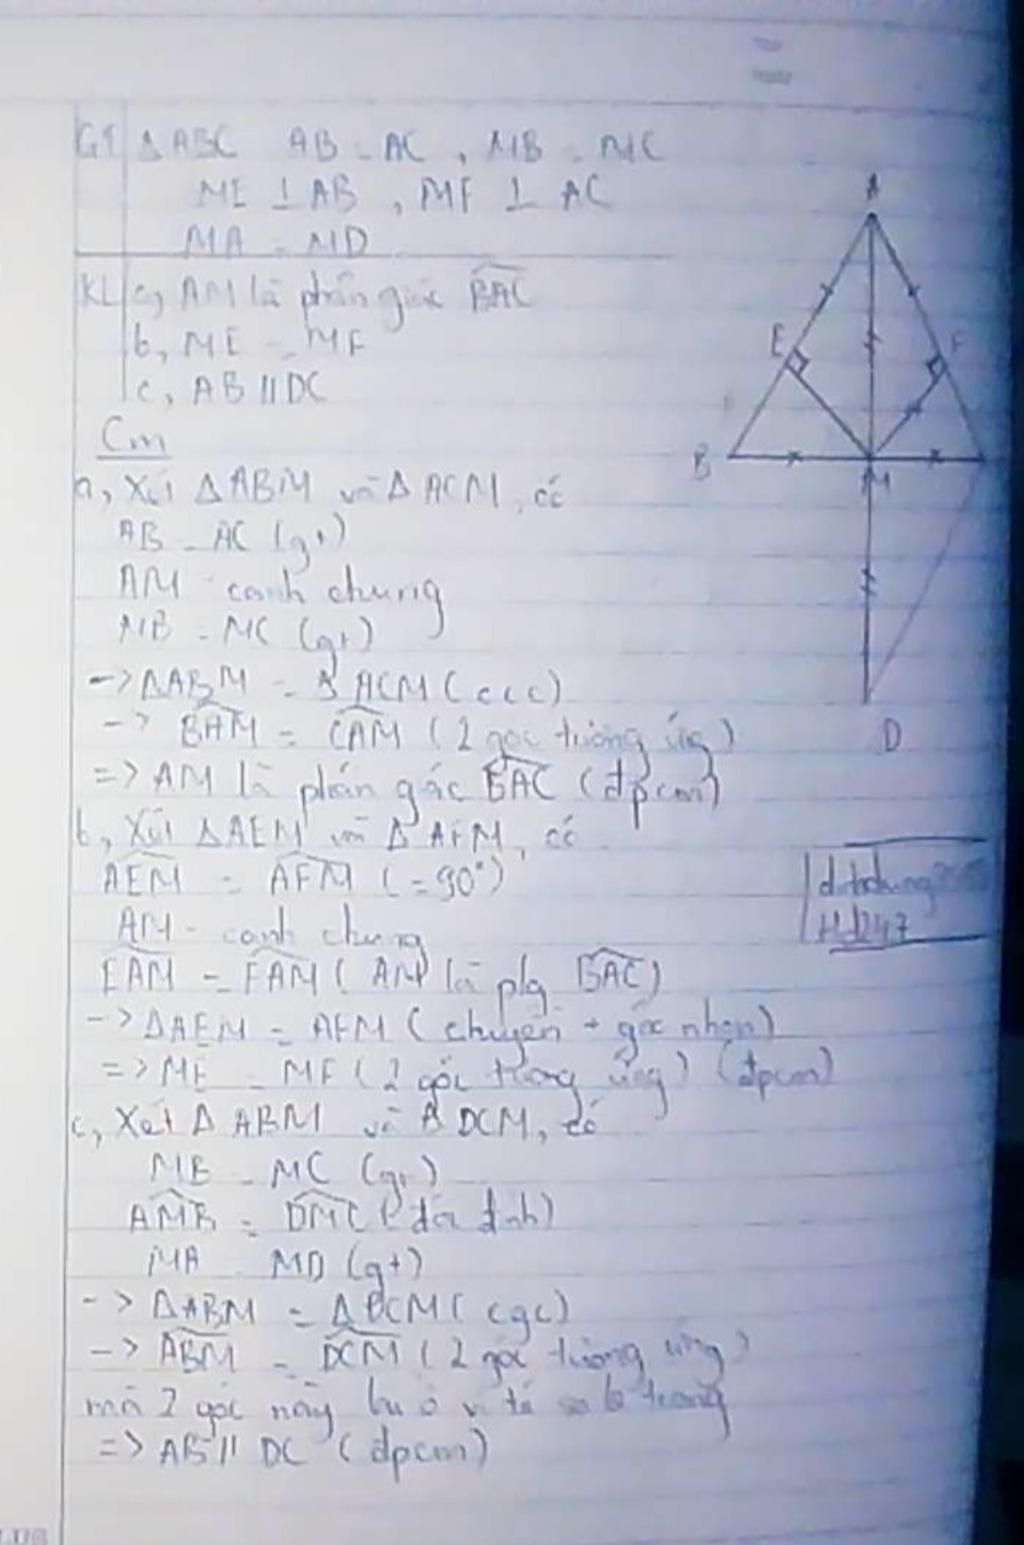 GT ΔABC AB = AC, MB = MC
ME ⊥ AB, MF ⊥ AC
MA = MD
KL a, AM là phân giác BAC
b, ME = MF
c, AB // DC
Cm
a, Xét ΔABM và ΔACM, có
AB = AC (gt)
AM - cạnh chung
MB = MC (gt)
-> ΔABM = ΔACM (ccc)
-> BAM = CAM (2 góc tương ứng)
=> AM là phân gác BAC (đpcm)
b, Xét ΔAEM và ΔAFM, có
AEM = AFM (=90°)
AM - cạnh chung
EAM = FAM (AM là plg BAC)
-> ΔAEM = AFM (chuyền + góc nhọn)
=> ME = MF (2 góc tương ứng) (đpcm)
c, Xét Δ ABM và Δ DCM, có
MB = MC (gt)
AMB = DMC (đối đỉnh)
MA = MD (gt)
-> ΔABM = ΔDCM (cgc)
-> ABM = DCM (2 góc tương ứng)
mà 2 góc này lại ở vị trí so le trong
=> AB // DC (đpcm)
A
E
F
B
M
D